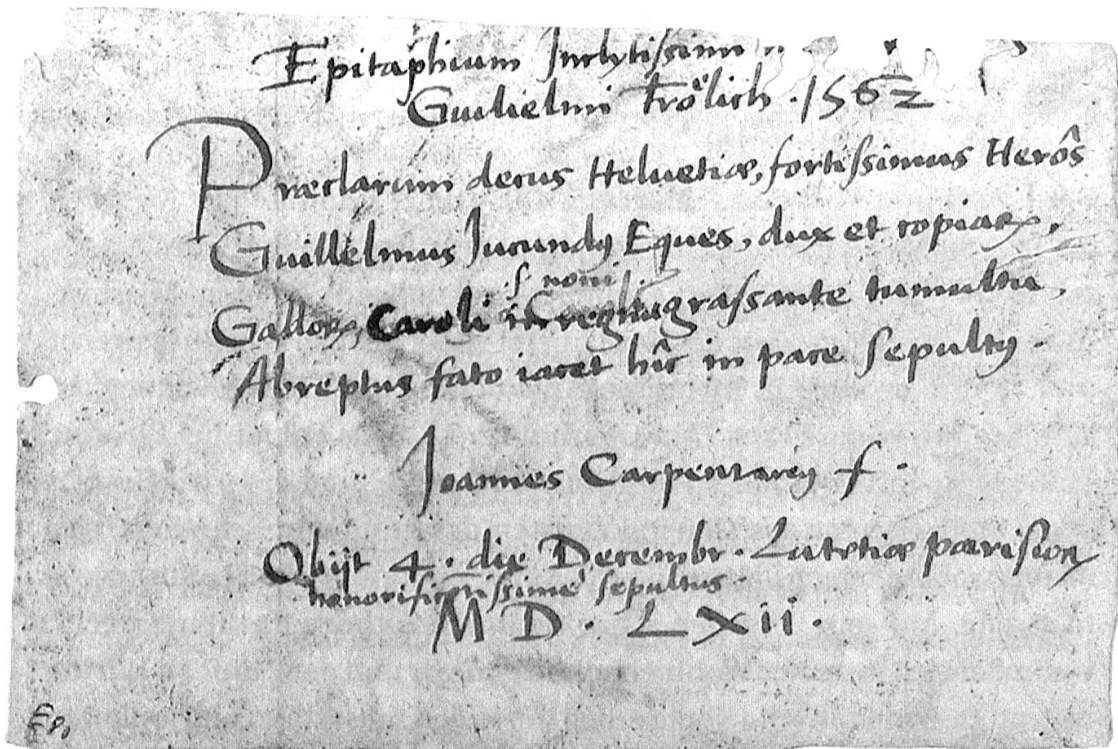 Epitaphium Inclytissimi
Guilielmi Frölich . 1562
Præclarum decus Helvetiæ, fortissimus Herôs
Guillelmus Iucundꝰ Eques, dux et copiaꝝ,
s noni
Galloꝝ, Caroli in regnũ grassante tumultu,
Abreptus fato iacet hîc in pace sepultꝰ.
Ioannes Carpentarꝰ f.
Obijt 4. die Decembr. Lutetiæ parisioꝝ
honorificẽtissime sepultus.
M D. L X ii.